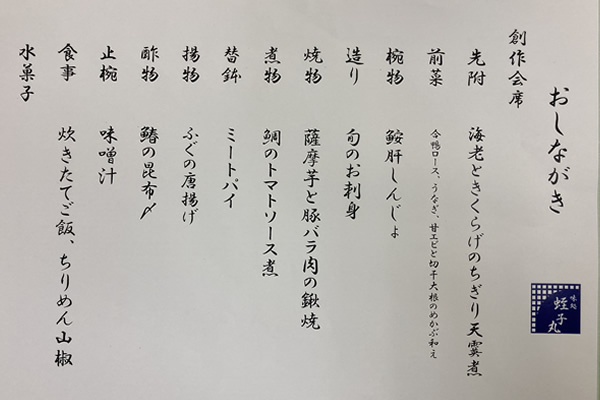 おしながき
味処
蛭子丸
創作会席
先附 海老ときくらげのちぎり天霙煮
前菜 合鴨ロース、うなぎ、甘エビと切干大根のめかぶ和え
椀物 鮟肝しんじょ
造り 旬のお刺身
焼物 薩摩芋と豚バラ肉の鍬焼
煮物 鯛のトマトソース煮
替鉢 ミートパイ
揚物 ふぐの唐揚げ
酢物 鰆の昆布〆
止椀 味噌汁
食事 炊きたてご飯、ちりめん山椒
水菓子